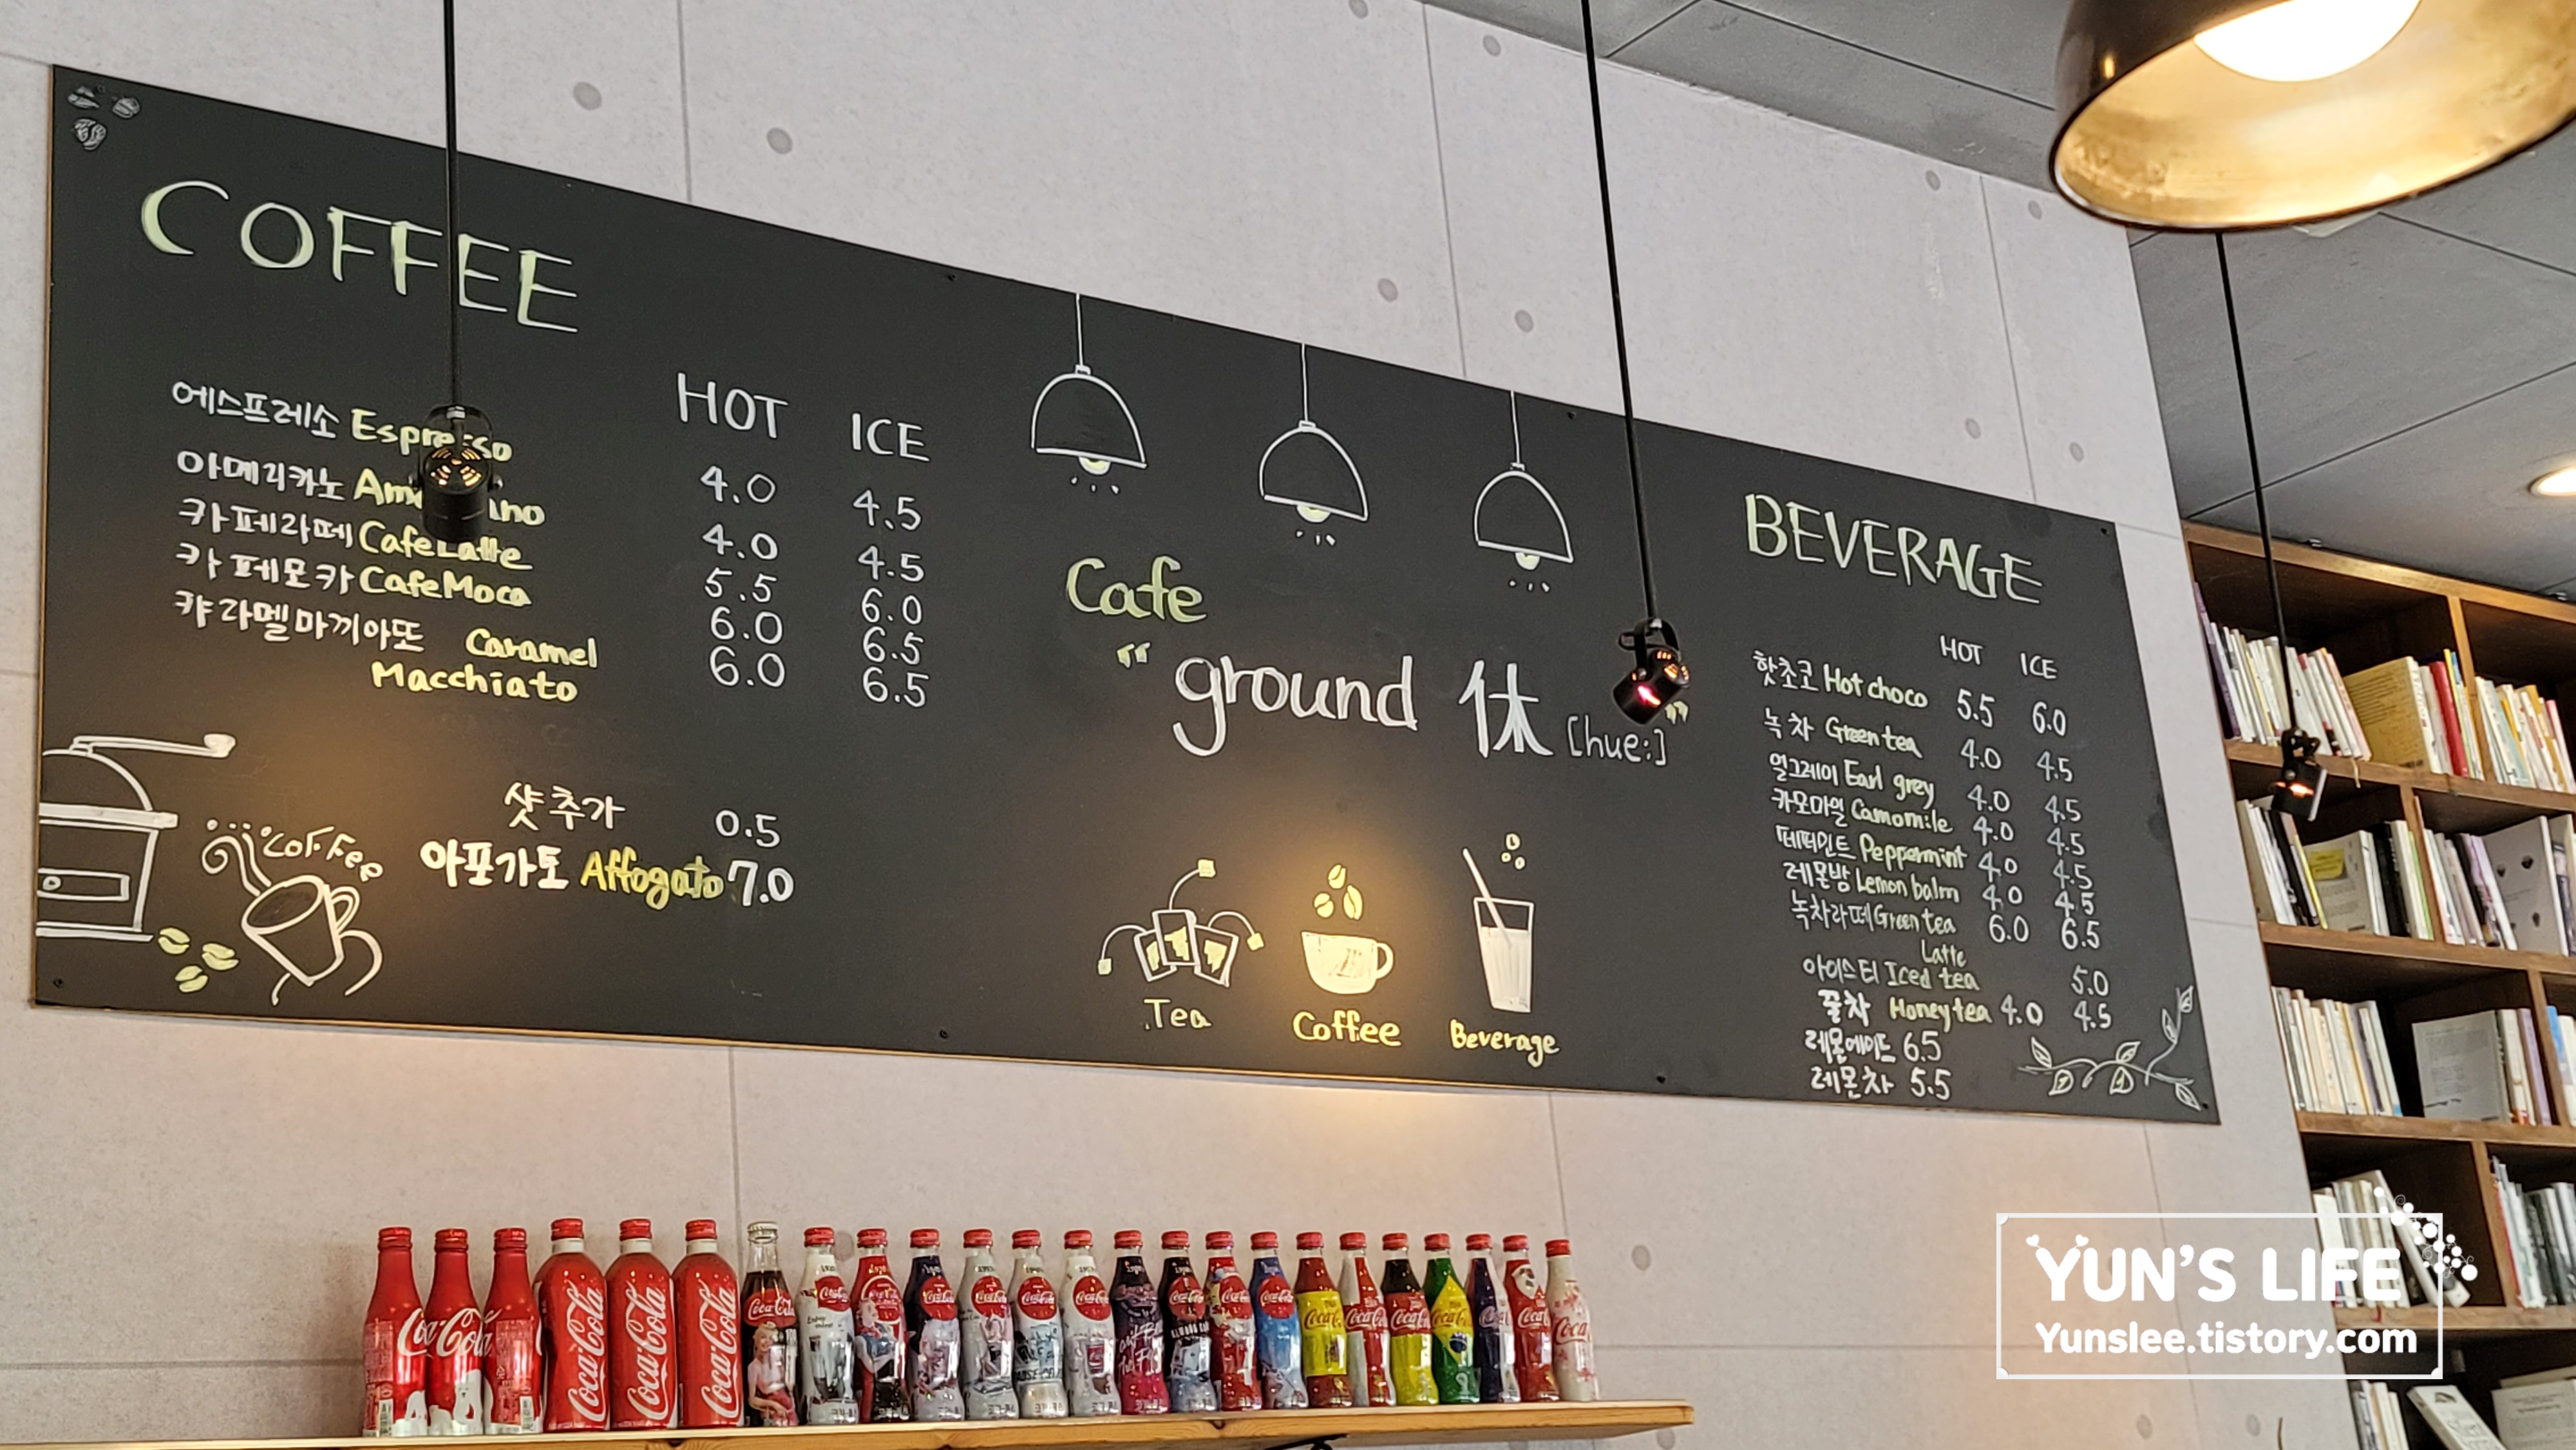 COFFEE
HOT ICE
에스프레소 Espresso 4.0 4.5
아메리카노 Americano 4.0 4.5
카페라떼 Cafe Latte 5.5 6.0
카페모카 Cafe Moca 6.0 6.5
캬라멜마끼아또 Caramel 6.0 6.5
Macchiato
샷추가 0.5
아포가토 Affogato 7.0
COFFee
Cafe
"ground 休 [hue:]"
Tea
Coffee
Beverage
BEVERAGE
HOT ICE
핫초코 Hot choco 5.5 6.0
녹차 Green tea 4.0 4.5
얼그레이 Earl grey 4.0 4.5
카모마일 Camomile 4.0 4.5
페퍼민트 Peppermint 4.0 4.5
레몬밤 Lemon balm 4.0 4.5
녹차라떼 Green tea 6.0 6.5
Latte
아이스티 Iced tea 5.0
꿀차 Honey tea 4.0 4.5
레몬에이드 6.5
레몬차 5.5
Coca-Cola
Coca-Cola
Coca-Cola
Coca-Cola
YUN'S LIFE
Yunslee.tistory.com